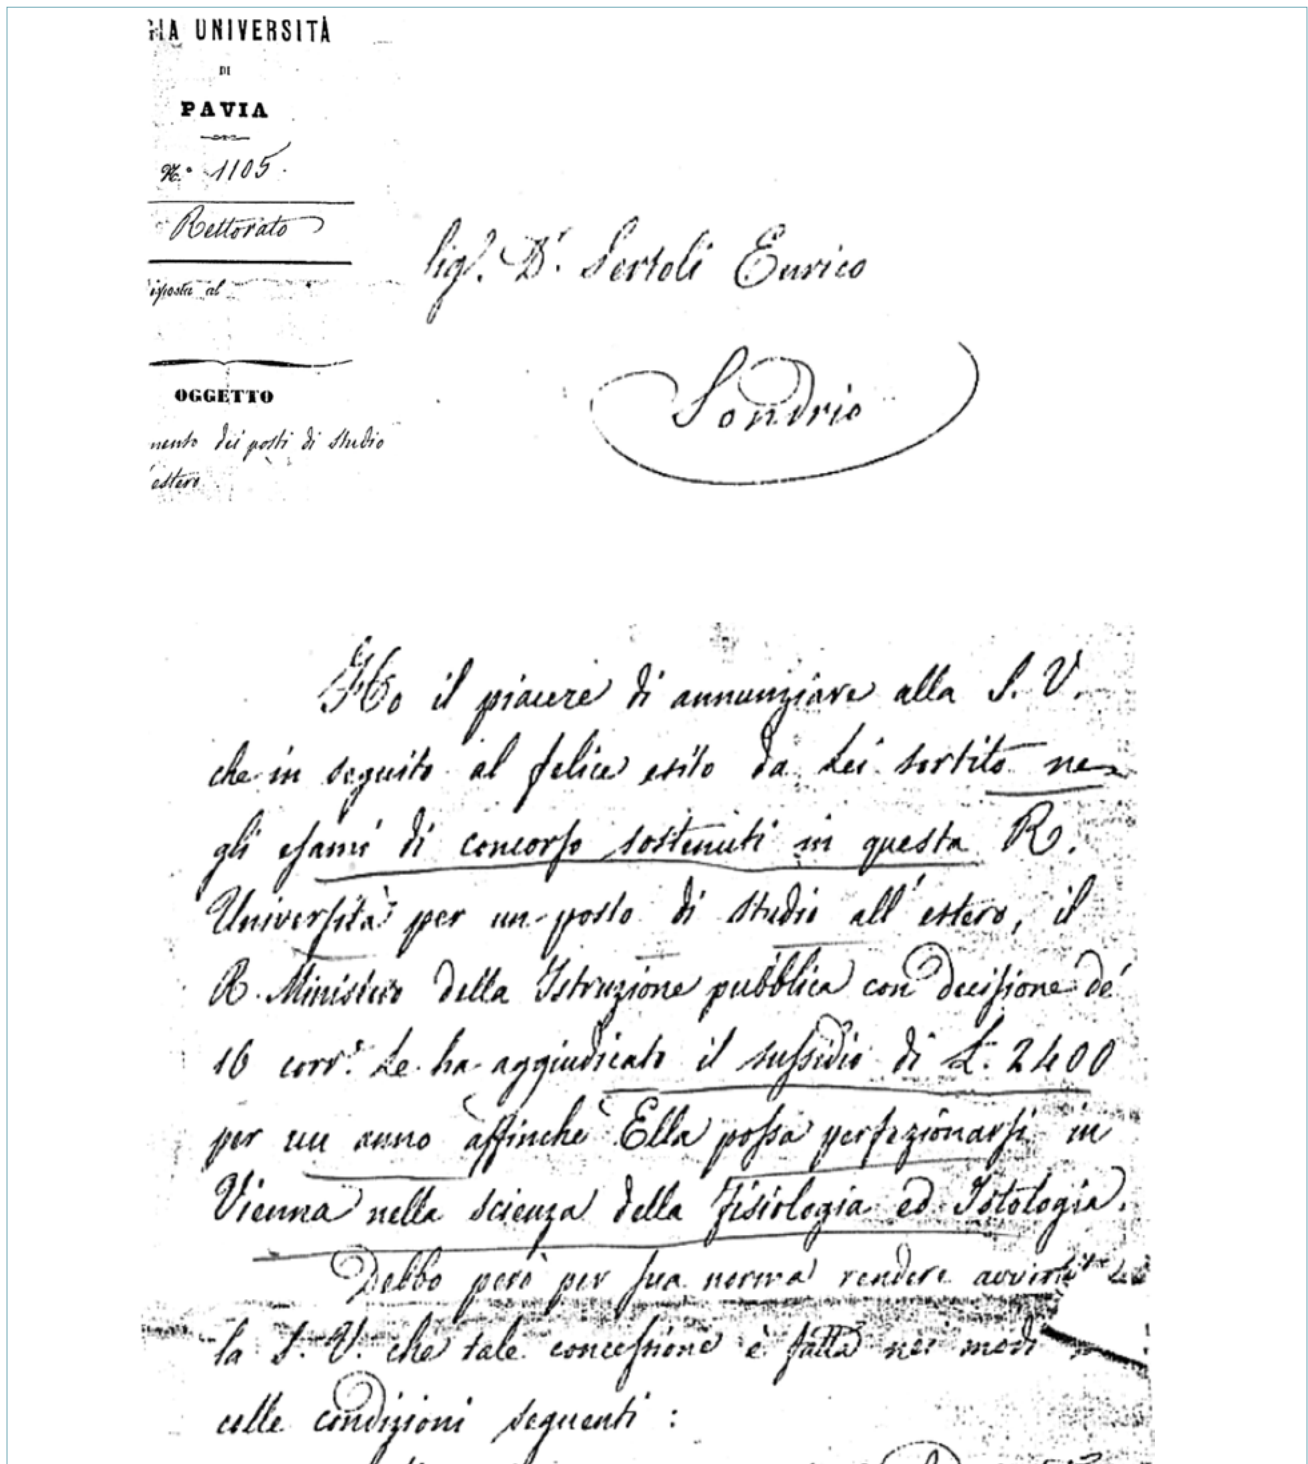 GIA UNIVERSITÀ
DI
PAVIA
N.° 1105.
Rettorato
isposta al
OGGETTO
mento dei posti di studio
estero
Sig.r D.r Sertoli Enrico
Sondrio
Ho il piacere di annunziare alla S. V.
che in seguito al felice esito da Lei sortito ne
gli esami di concorso sostenuti in questa R.
Università per un posto di studio all'estero, il
R. Ministero della Istruzione pubblica con decisione de'
16 corr.e Le ha aggiudicato il sussidio di L. 2400
per un anno affinchè Ella possa perfezionarsi in
Vienna nella scienza della Fisiologia ed Istologia.
Debbo però per sua norma rendere
la S. V. che tale concessione è fatta nei modi
colle condizioni seguenti :